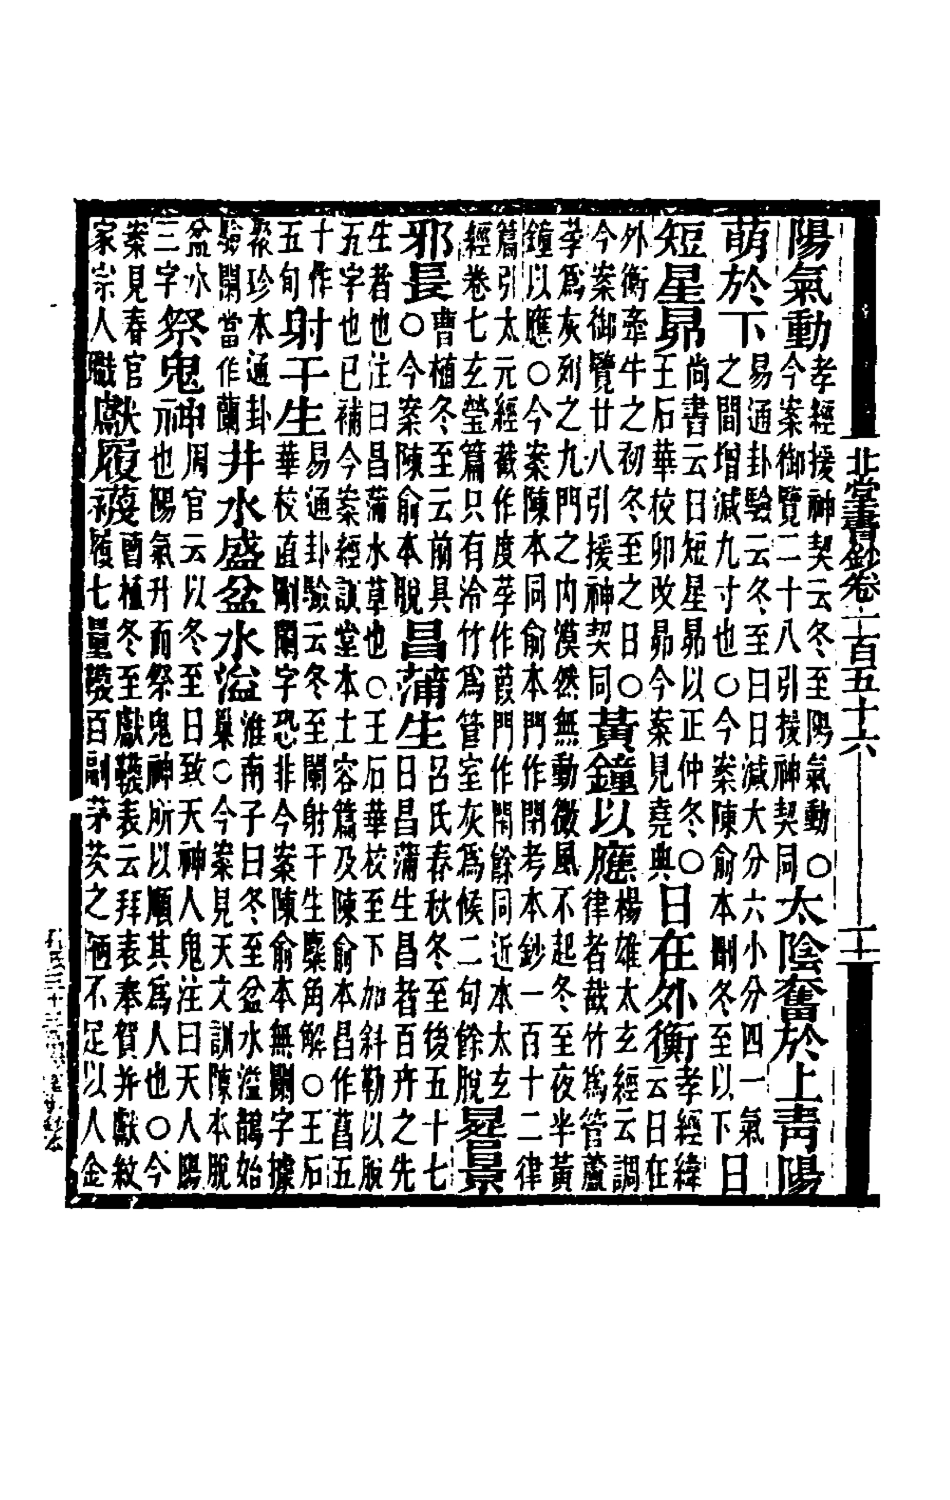 北堂書鈔卷一百五十六　二十
陽氣動孝經援神契云冬至陽氣動○今案御覽二十八引援神契同太陰奮於上青陽
萌於下易通卦驗云冬至日日減大分六小分四一氣之間增減九寸也○今案陳俞本刪冬至以下日
短星昴尚書云日短星昴以正仲冬○王石華校卯改昴今案見堯典日在外衡孝經緯云日在
外衡牽牛之初冬至之日○今案御覽廿八引援神契同黃鐘以應楊雄太玄經云調律者截竹爲管蘆
莩爲灰列之九門之內漠然無動微風不起冬至夜半黃鐘以應○今案陳本同俞本門作閉考本鈔一百十二律
篇引太元經截作度莩作葭門作閉餘同近本太玄經卷七玄瑩篇只有泠竹爲管室灰爲候二句餘脫晷景
邪長曹植冬至云前具○今案陳俞本脫昌蒲生呂氏春秋冬至後五十七日昌蒲生昌者百卉之先
生者也注曰昌蒲水草也○王石華校至下加斜勒以脫五字也已補今案經訓堂本士容篇及陳俞本昌作菖五
十作五旬射干生易通卦驗云冬至闌射干生麋角解○王石華校直刪闌字恐非今案陳俞本無刪字據
聚珍本通卦驗闌當作蘭井水盛盆水溢淮南子曰冬至盆水溢鵲始巢○今案見天文訓陳本脫
盆水三字祭鬼神周官云以冬至日致天神人鬼注曰天人陽也陽氣升而祭鬼神所以順其爲人也○今
案見春官家宗人職獻履襪曹植冬至獻襪表云拜表奉賀并獻紋履七量襪百副茅茨之陋不足以人金